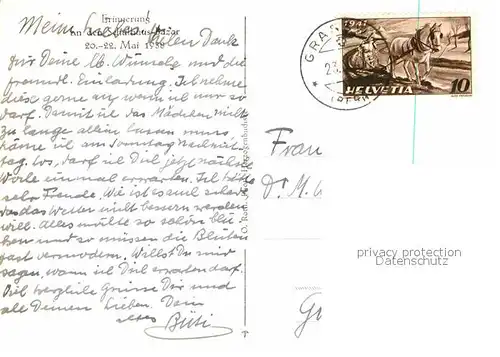 Erinnerung
an den Schulhaus-Bazar
20.-22. Mai 1938
Meine Vielen Dank
für Deine lb. Wünsche und die
freundl. Einladung. Ich nehme
diese gerne an, wenn ich nur so
darf. Damit ich das Mädchen nicht
zu lange allein lassen muss,
käme ich am Sonntag Nachmit-
tag. Wo, darf ich Dich jetzt nächste
Woche einmal erwarten. Ich hätte
sehr Freude. Wie ist es auch schade,
das das Wetter nicht bessern werden
will. Alles müsste so schön blü-
hen und so müssen die Blüten
fast vermodern. Willst Du mir
sagen, wann ich Dich erwarten darf.
Viel herzliche Grüsse Dir und
all Deinen Lieben. Dein
altes
Büsi
Herzogenbuchsee
GRAS
(BERN
1941
HELVETIA 10
Frau
Dr. M.
privacy protection
Datenschutz